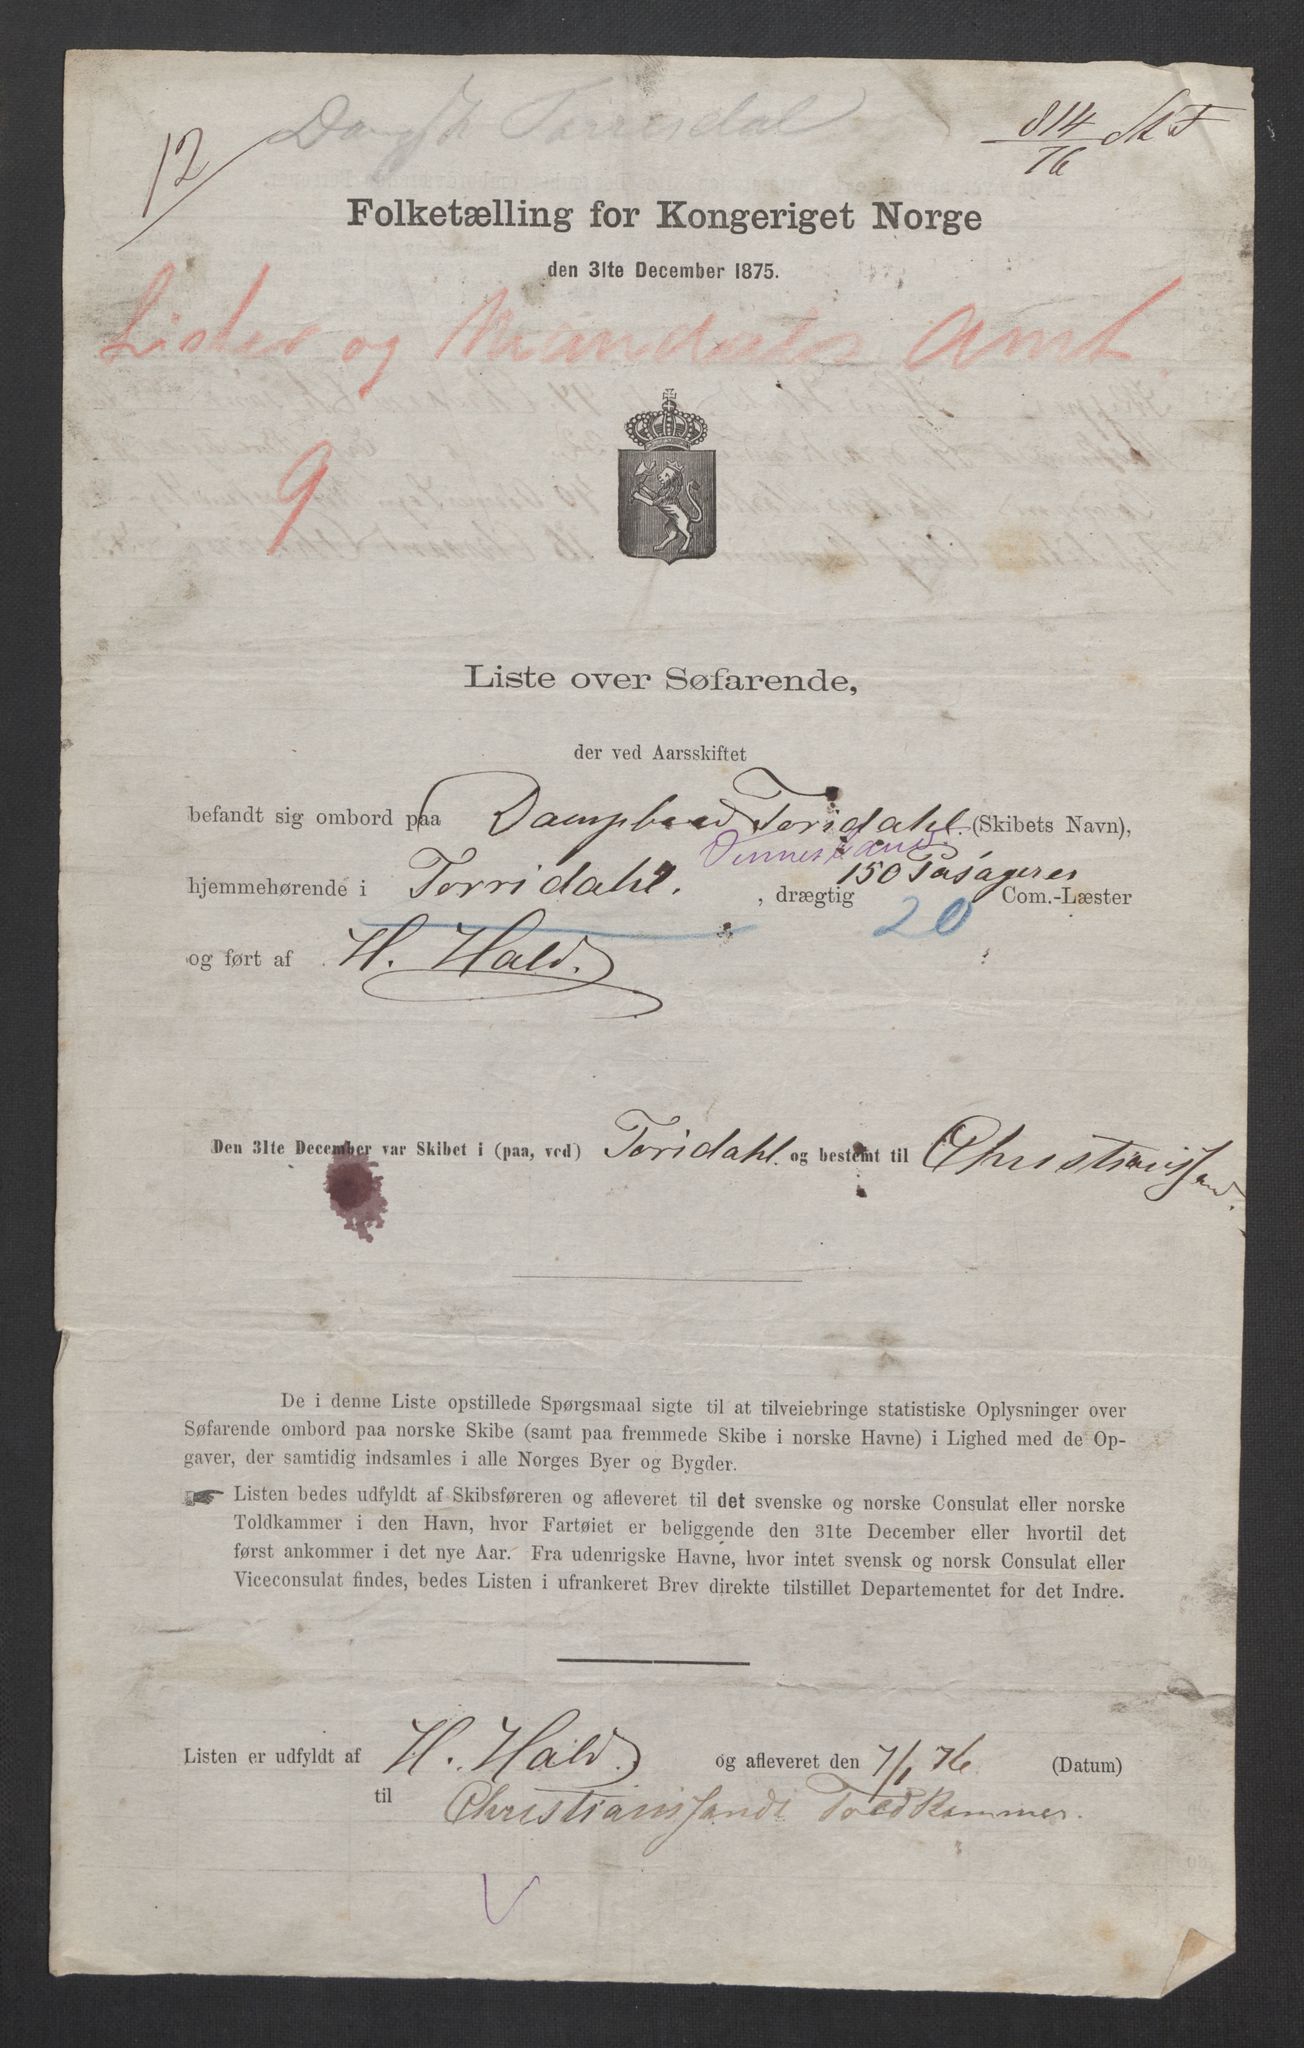 12
Dampsk Torrisdal
814/76 M F
Folketælling for Kongeriget Norge
den 31te December 1875.
Lister og Mandals Amt
9
Liste over Søfarende,
der ved Aarsskiftet
befandt sig ombord paa Dampbaad Toridahl. (Skibets Navn),
Vennesland
150 Pasagerer
hjemmehørende i Torridahl. , drægtig 20 Com.-Læster
og ført af H. Hald.
Den 31te December var Skibet i (paa, ved) Toridahl. og bestemt til Christianssand.
De i denne Liste opstillede Spørgsmaal sigte til at tilveiebringe statistiske Oplysninger over
Søfarende ombord paa norske Skibe (samt paa fremmede Skibe i norske Havne) i Lighed med de Op-
gaver, der samtidig indsamles i alle Norges Byer og Bygder.
Listen bedes udfyldt af Skibsføreren og afleveret til det svenske og norske Consulat eller norske
Toldkammer i den Havn, hvor Fartøiet er beliggende den 31te December eller hvortil det
først ankommer i det nye Aar. Fra udenrigske Havne, hvor intet svensk og norsk Consulat eller
Viceconsulat findes, bedes Listen i ufrankeret Brev direkte tilstillet Departementet for det Indre.
Listen er udfyldt af H. Hald. og afleveret den 7/1 76 (Datum)
til Christianssands Toldkammer.